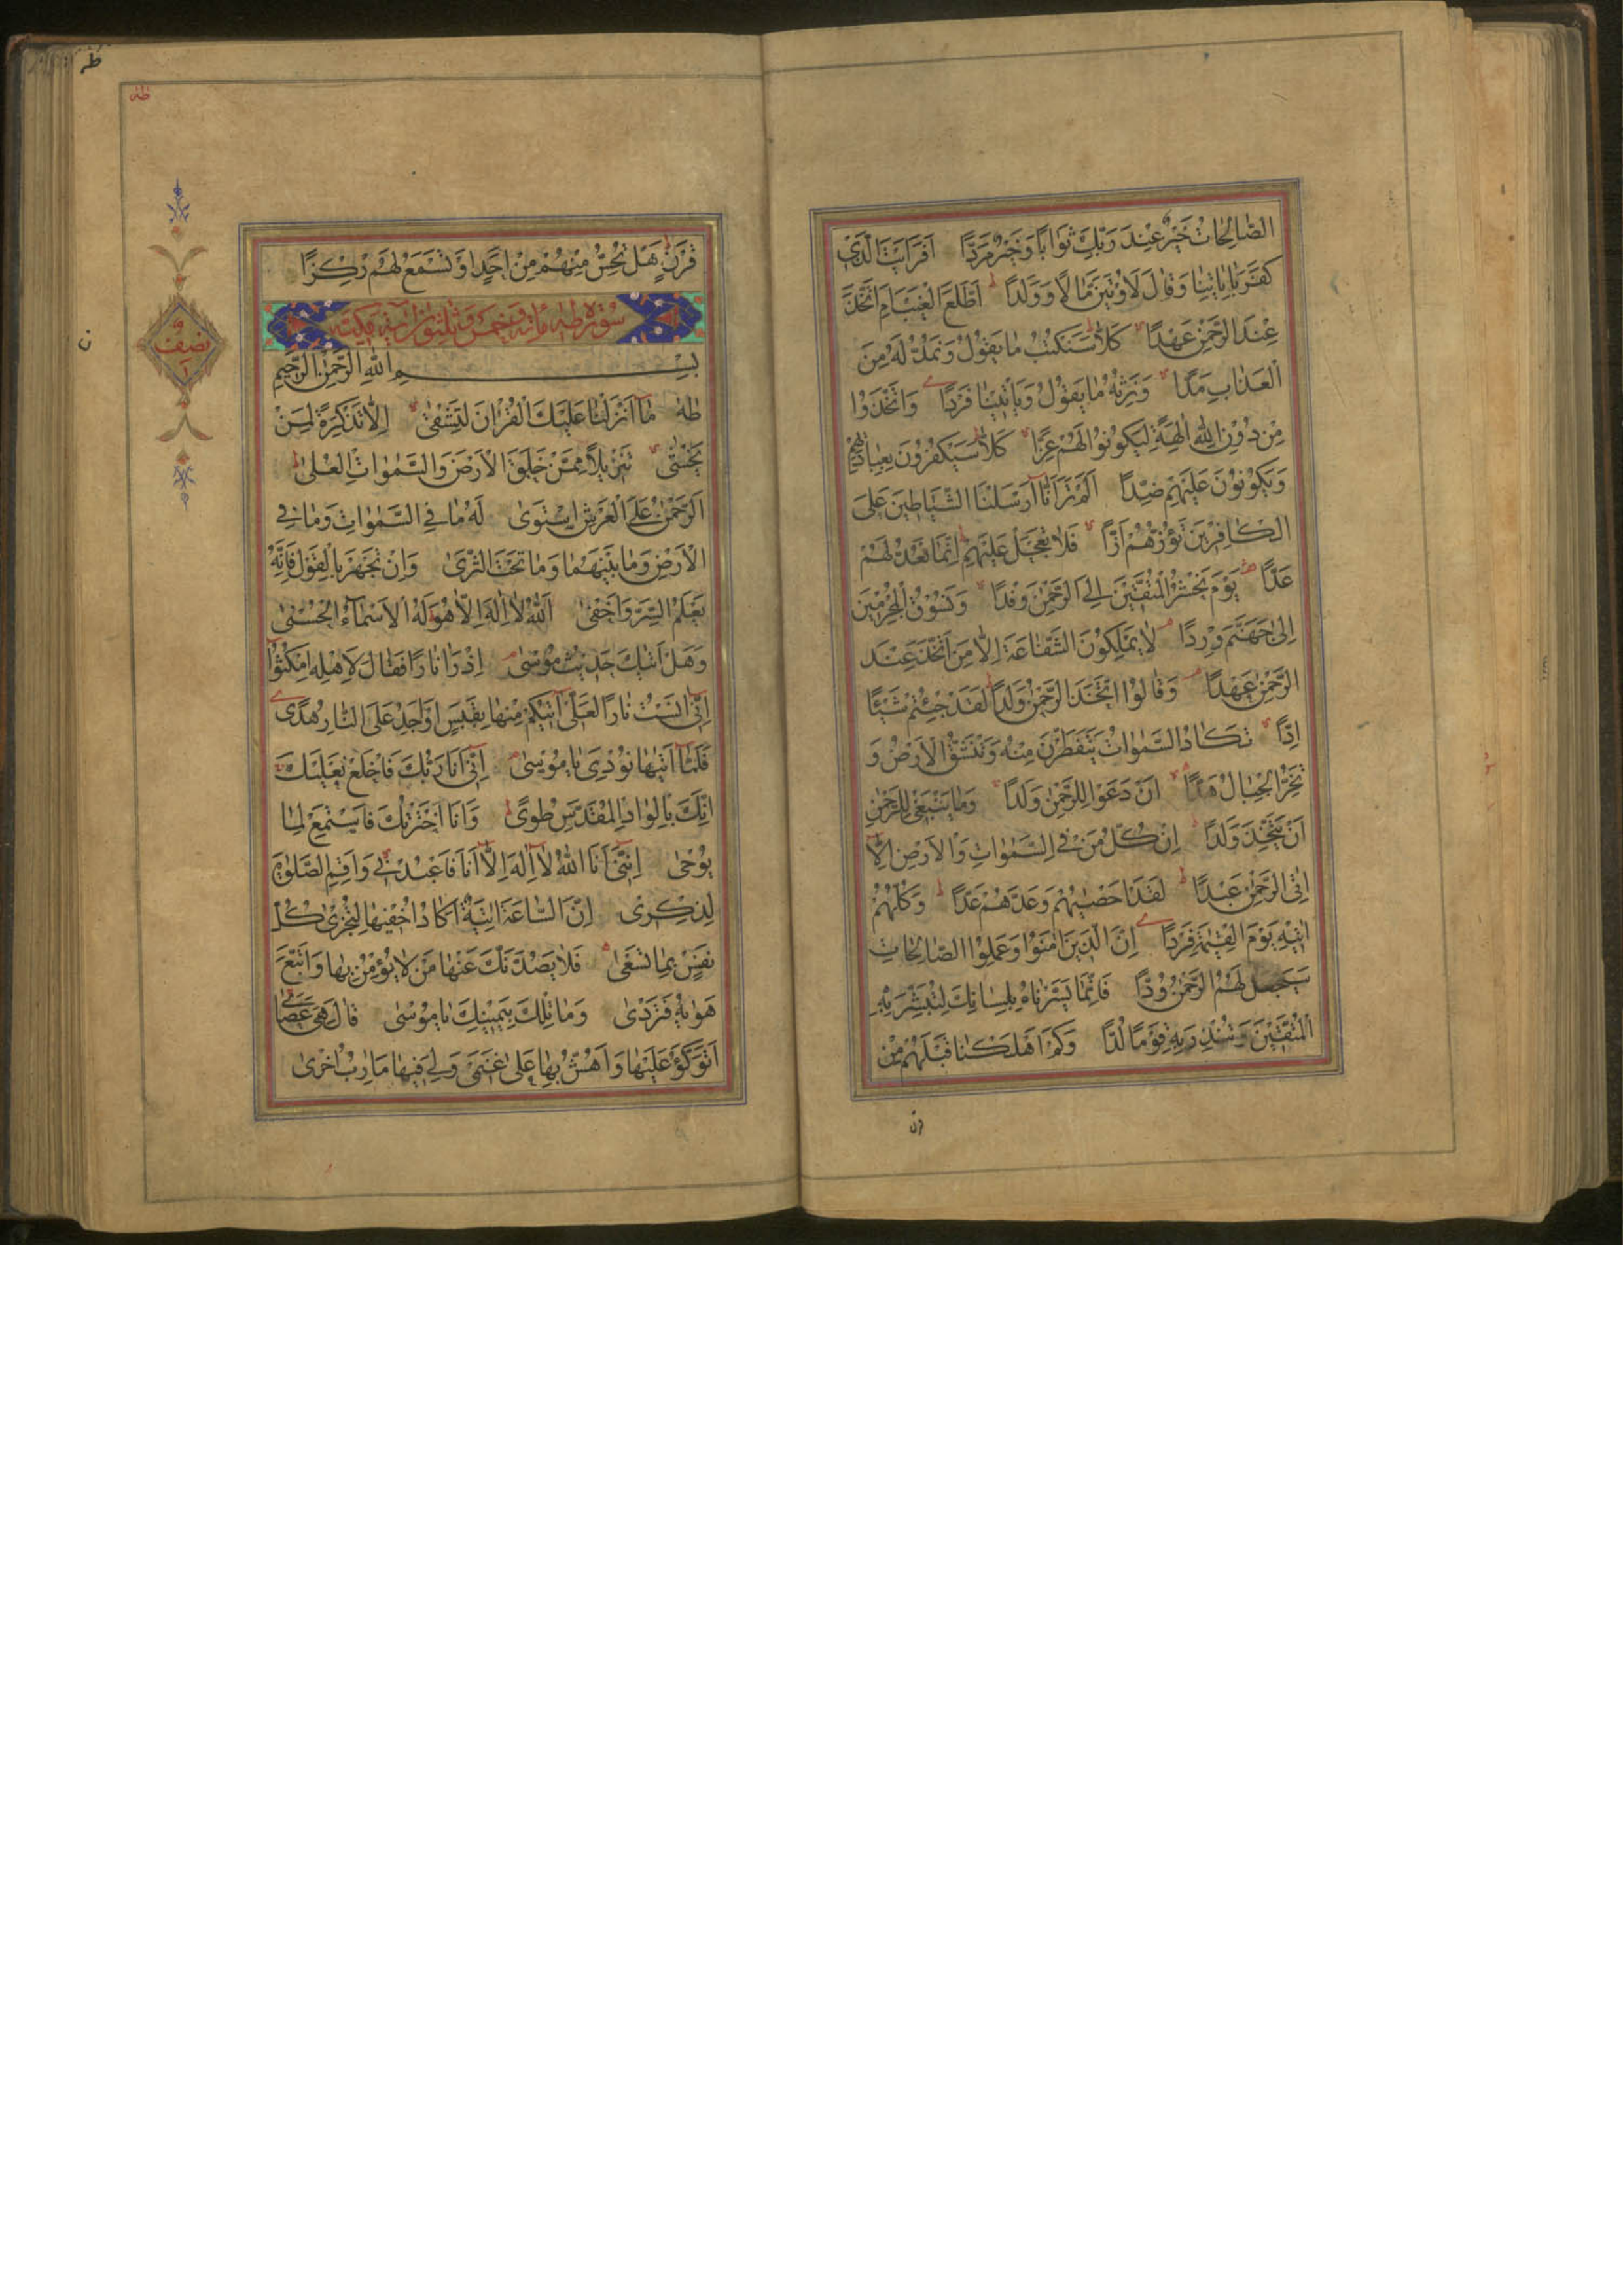 الصَّالِحَاتُ خَيْرٌ عِنْدَ رَبِّكَ ثَوَابًا وَخَيْرٌ مَرَدًّا اَفَرَاَيْتَ الَّذِى
كَفَرَ بِاٰيَاتِنَا وَقَالَ لَاُوتَيَنَّ مَالًا وَوَلَدًا ط اَطَّلَعَ الْغَيْبَ اَمِ اتَّخَذَ
عِنْدَ الرَّحْمٰنِ عَهْدًا كَلَّا سَنَكْتُبُ مَا يَقُوْلُ وَنَمُدُّ لَهُ مِنَ
الْعَذَابِ مَدًّا وَنَرِثُهُ مَا يَقُوْلُ وَيَاْتِيْنَا فَرْدًا وَاتَّخَذُوا
مِنْ دُوْنِ اللّٰهِ اٰلِهَةً لِيَكُوْنُوْا لَهُمْ عِزًّا كَلَّا سَيَكْفُرُوْنَ بِعِبَادَتِهِمْ
وَيَكُوْنُوْنَ عَلَيْهِمْ ضِدًّا اَلَمْ تَرَ اَنَّا اَرْسَلْنَا الشَّيَاطِيْنَ عَلَى
الْكَافِرِيْنَ تَؤُزُّهُمْ اَزًّا فَلَا تَعْجَلْ عَلَيْهِمْ اِنَّمَا نَعُدُّ لَهُمْ
عَدًّا يَوْمَ نَحْشُرُ الْمُتَّقِيْنَ اِلَى الرَّحْمٰنِ وَفْدًا وَنَسُوْقُ الْمُجْرِمِيْنَ
اِلٰى جَهَنَّمَ وِرْدًا لَا يَمْلِكُوْنَ الشَّفَاعَةَ اِلَّا مَنِ اتَّخَذَ عِنْدَ
الرَّحْمٰنِ عَهْدًا وَقَالُوا اتَّخَذَ الرَّحْمٰنُ وَلَدًا لَقَدْ جِئْتُمْ شَيْئًا
اِدًّا تَكَادُ السَّمٰوَاتُ يَتَفَطَّرْنَ مِنْهُ وَتَنْشَقُّ الْاَرْضُ وَ
تَخِرُّ الْجِبَالُ هَدًّا اَنْ دَعَوْا لِلرَّحْمٰنِ وَلَدًا وَمَا يَنْبَغِى لِلرَّحْمٰنِ
اَنْ يَتَّخِذَ وَلَدًا اِنْ كُلُّ مَنْ فِى السَّمٰوَاتِ وَالْاَرْضِ اِلَّا
اٰتِى الرَّحْمٰنِ عَبْدًا ط لَقَدْ اَحْصٰيهُمْ وَعَدَّهُمْ عَدًّا ط وَكُلُّهُمْ
اٰتِيْهِ يَوْمَ الْقِيٰمَةِ فَرْدًا اِنَّ الَّذِيْنَ اٰمَنُوْا وَعَمِلُوا الصَّالِحَاتِ
سَيَجْعَلُ لَهُمُ الرَّحْمٰنُ وُدًّا فَاِنَّمَا يَسَّرْنَاهُ بِلِسَانِكَ لِتُبَشِّرَ بِهِ
الْمُتَّقِيْنَ وَتُنْذِرَ بِهِ قَوْمًا لُدًّا وَكَمْ اَهْلَكْنَا قَبْلَهُمْ مِنْ
قرن
طه
طه
قَرْنٍ هَلْ تُحِسُّ مِنْهُمْ مِنْ اَحَدٍ اَوْ تَسْمَعُ لَهُمْ رِكْزًا
سُوْرَةُ طٰهٰ مائة وخمس وثلثون اية مكية
نصف
بِسْمِ اللّٰهِ الرَّحْمٰنِ الرَّحِيْمِ
طٰهٰ مَا اَنْزَلْنَا عَلَيْكَ الْقُرْاٰنَ لِتَشْقٰى اِلَّا تَذْكِرَةً لِمَنْ
يَخْشٰى تَنْزِيْلًا مِمَّنْ خَلَقَ الْاَرْضَ وَالسَّمٰوَاتِ الْعُلٰى ط
اَلرَّحْمٰنُ عَلَى الْعَرْشِ اسْتَوٰى لَهُ مَا فِى السَّمٰوَاتِ وَمَا فِى
الْاَرْضِ وَمَا بَيْنَهُمَا وَمَا تَحْتَ الثَّرٰى وَاِنْ تَجْهَرْ بِالْقَوْلِ فَاِنَّهُ
يَعْلَمُ السِّرَّ وَاَخْفٰى اَللّٰهُ لَا اِلٰهَ اِلَّا هُوَ لَهُ الْاَسْمَاءُ الْحُسْنٰى
وَهَلْ اَتٰيكَ حَدِيْثُ مُوْسٰى اِذْ رَاٰ نَارًا فَقَالَ لِاَهْلِهِ امْكُثُوْا
اِنِّى اٰنَسْتُ نَارًا لَعَلِّى اٰتِيْكُمْ مِنْهَا بِقَبَسٍ اَوْ اَجِدُ عَلَى النَّارِ هُدًى
فَلَمَّا اَتٰيهَا نُوْدِىَ يَا مُوْسٰى اِنِّى اَنَا رَبُّكَ فَاخْلَعْ نَعْلَيْكَ
اِنَّكَ بِالْوَادِ الْمُقَدَّسِ طُوًى ط وَاَنَا اخْتَرْتُكَ فَاسْتَمِعْ لِمَا
يُوْحٰى اِنَّنِى اَنَا اللّٰهُ لَا اِلٰهَ اِلَّا اَنَا فَاعْبُدْنِى وَاَقِمِ الصَّلٰوةَ
لِذِكْرِى اِنَّ السَّاعَةَ اٰتِيَةٌ اَكَادُ اُخْفِيْهَا لِتُجْزٰى كُلُّ
نَفْسٍ بِمَا تَسْعٰى فَلَا يَصُدَّنَّكَ عَنْهَا مَنْ لَا يُؤْمِنُ بِهَا وَاتَّبَعَ
هَوٰيهُ فَتَرْدٰى وَمَا تِلْكَ بِيَمِيْنِكَ يَا مُوْسٰى قَالَ هِىَ عَصَاىَ
اَتَوَكَّؤُ عَلَيْهَا وَاَهُشُّ بِهَا عَلٰى غَنَمِى وَلِىَ فِيْهَا مَاٰرِبُ اُخْرٰى